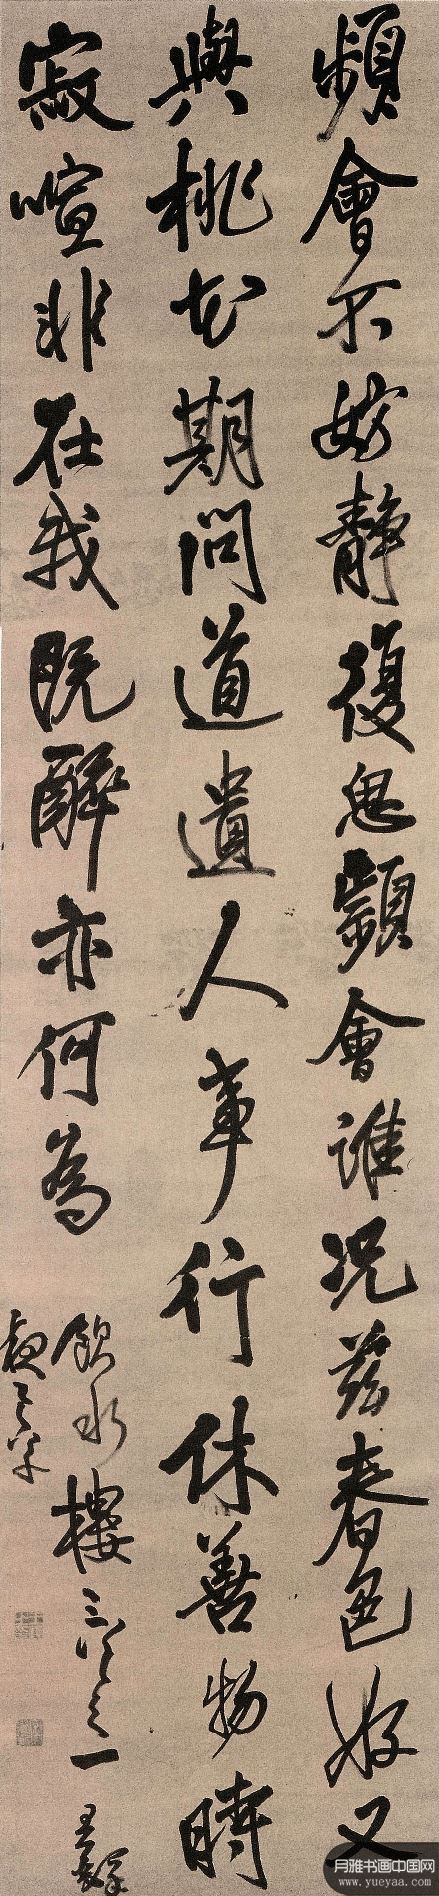 頻會不妨靜復思會誰況茲春色好又
與桃花期問道遺人事行休善物時
寂喧非在我既醉亦何為
飲樓三之一王鐸
月雅书画中国网
www.yueyaa.com